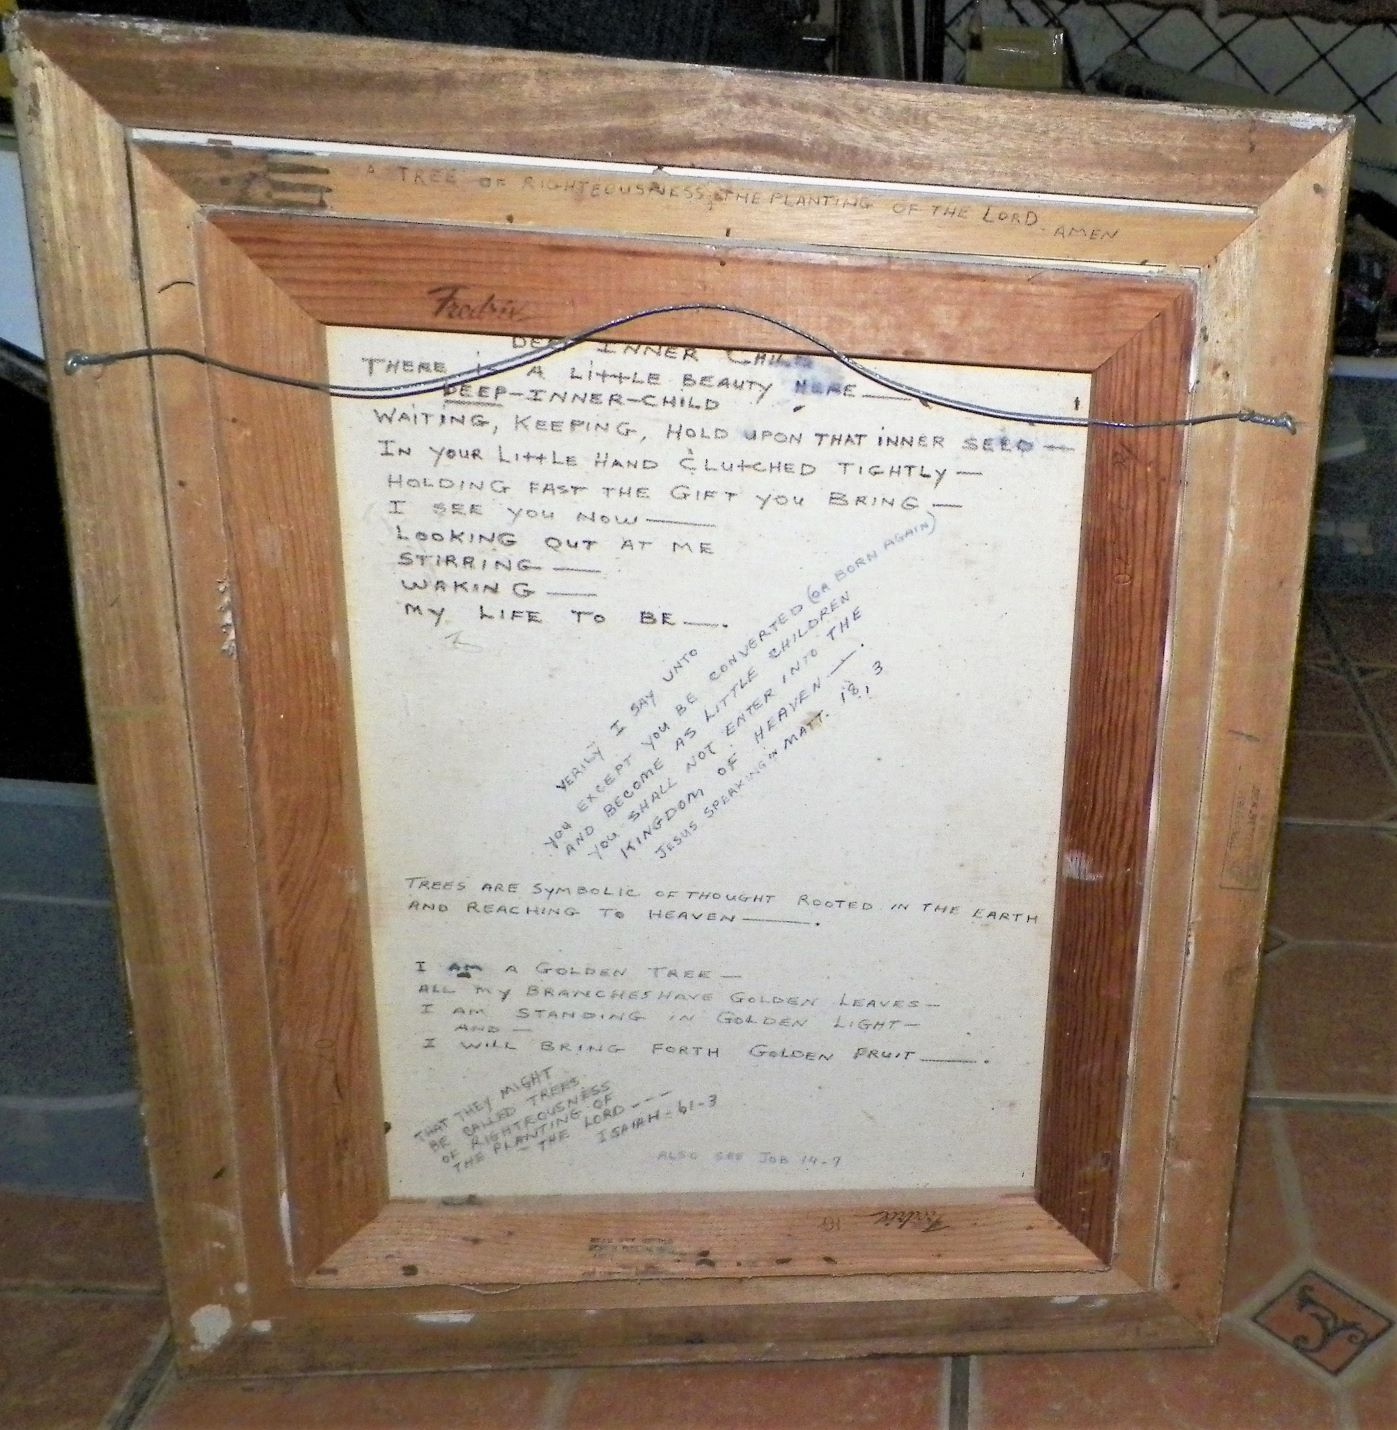 A TREE OF RIGHTEOUSNESS, THE PLANTING OF THE LORD.
AMEN
Fredrix
DEEP INNER CHILD
THERE is A LittLE BEAUTY HERE —
DEEP-INNER-CHILD
WAITING, KEEPING, HOLD UPON THAT INNER SEED —
IN YOUR LittLE HAND CLUTCHED TIGHTLY —
HOLDING FAST THE GIFT YOU BRING —
I SEE YOU NOW ——
LOOKING OUT AT ME
STIRRING ——
WAKING ——
MY LIFE TO BE ——.
VERILY I SAY UNTO
YOU EXCEPT YOU BE CONVERTED (OR BORN AGAIN)
AND BECOME AS LITTLE CHILDREN
YOU SHALL NOT ENTER INTO THE
KINGDOM OF HEAVEN ——.
JESUS SPEAKING IN MATT. 18, 3
TREES ARE SYMBOLIC OF THOUGHT ROOTED IN THE EARTH
AND REACHING TO HEAVEN ——.
I AM A GOLDEN TREE —
ALL MY BRANCHES HAVE GOLDEN LEAVES —
I AM STANDING IN GOLDEN LIGHT —
AND —
I WILL BRING FORTH GOLDEN FRUIT ——.
THAT THEY MIGHT
BE CALLED TREES
OF RIGHTEOUSNESS
THE PLANTING OF
THE LORD ---
ISAIAH - 61-3
ALSO SEE JOB 14-7
Fredrix